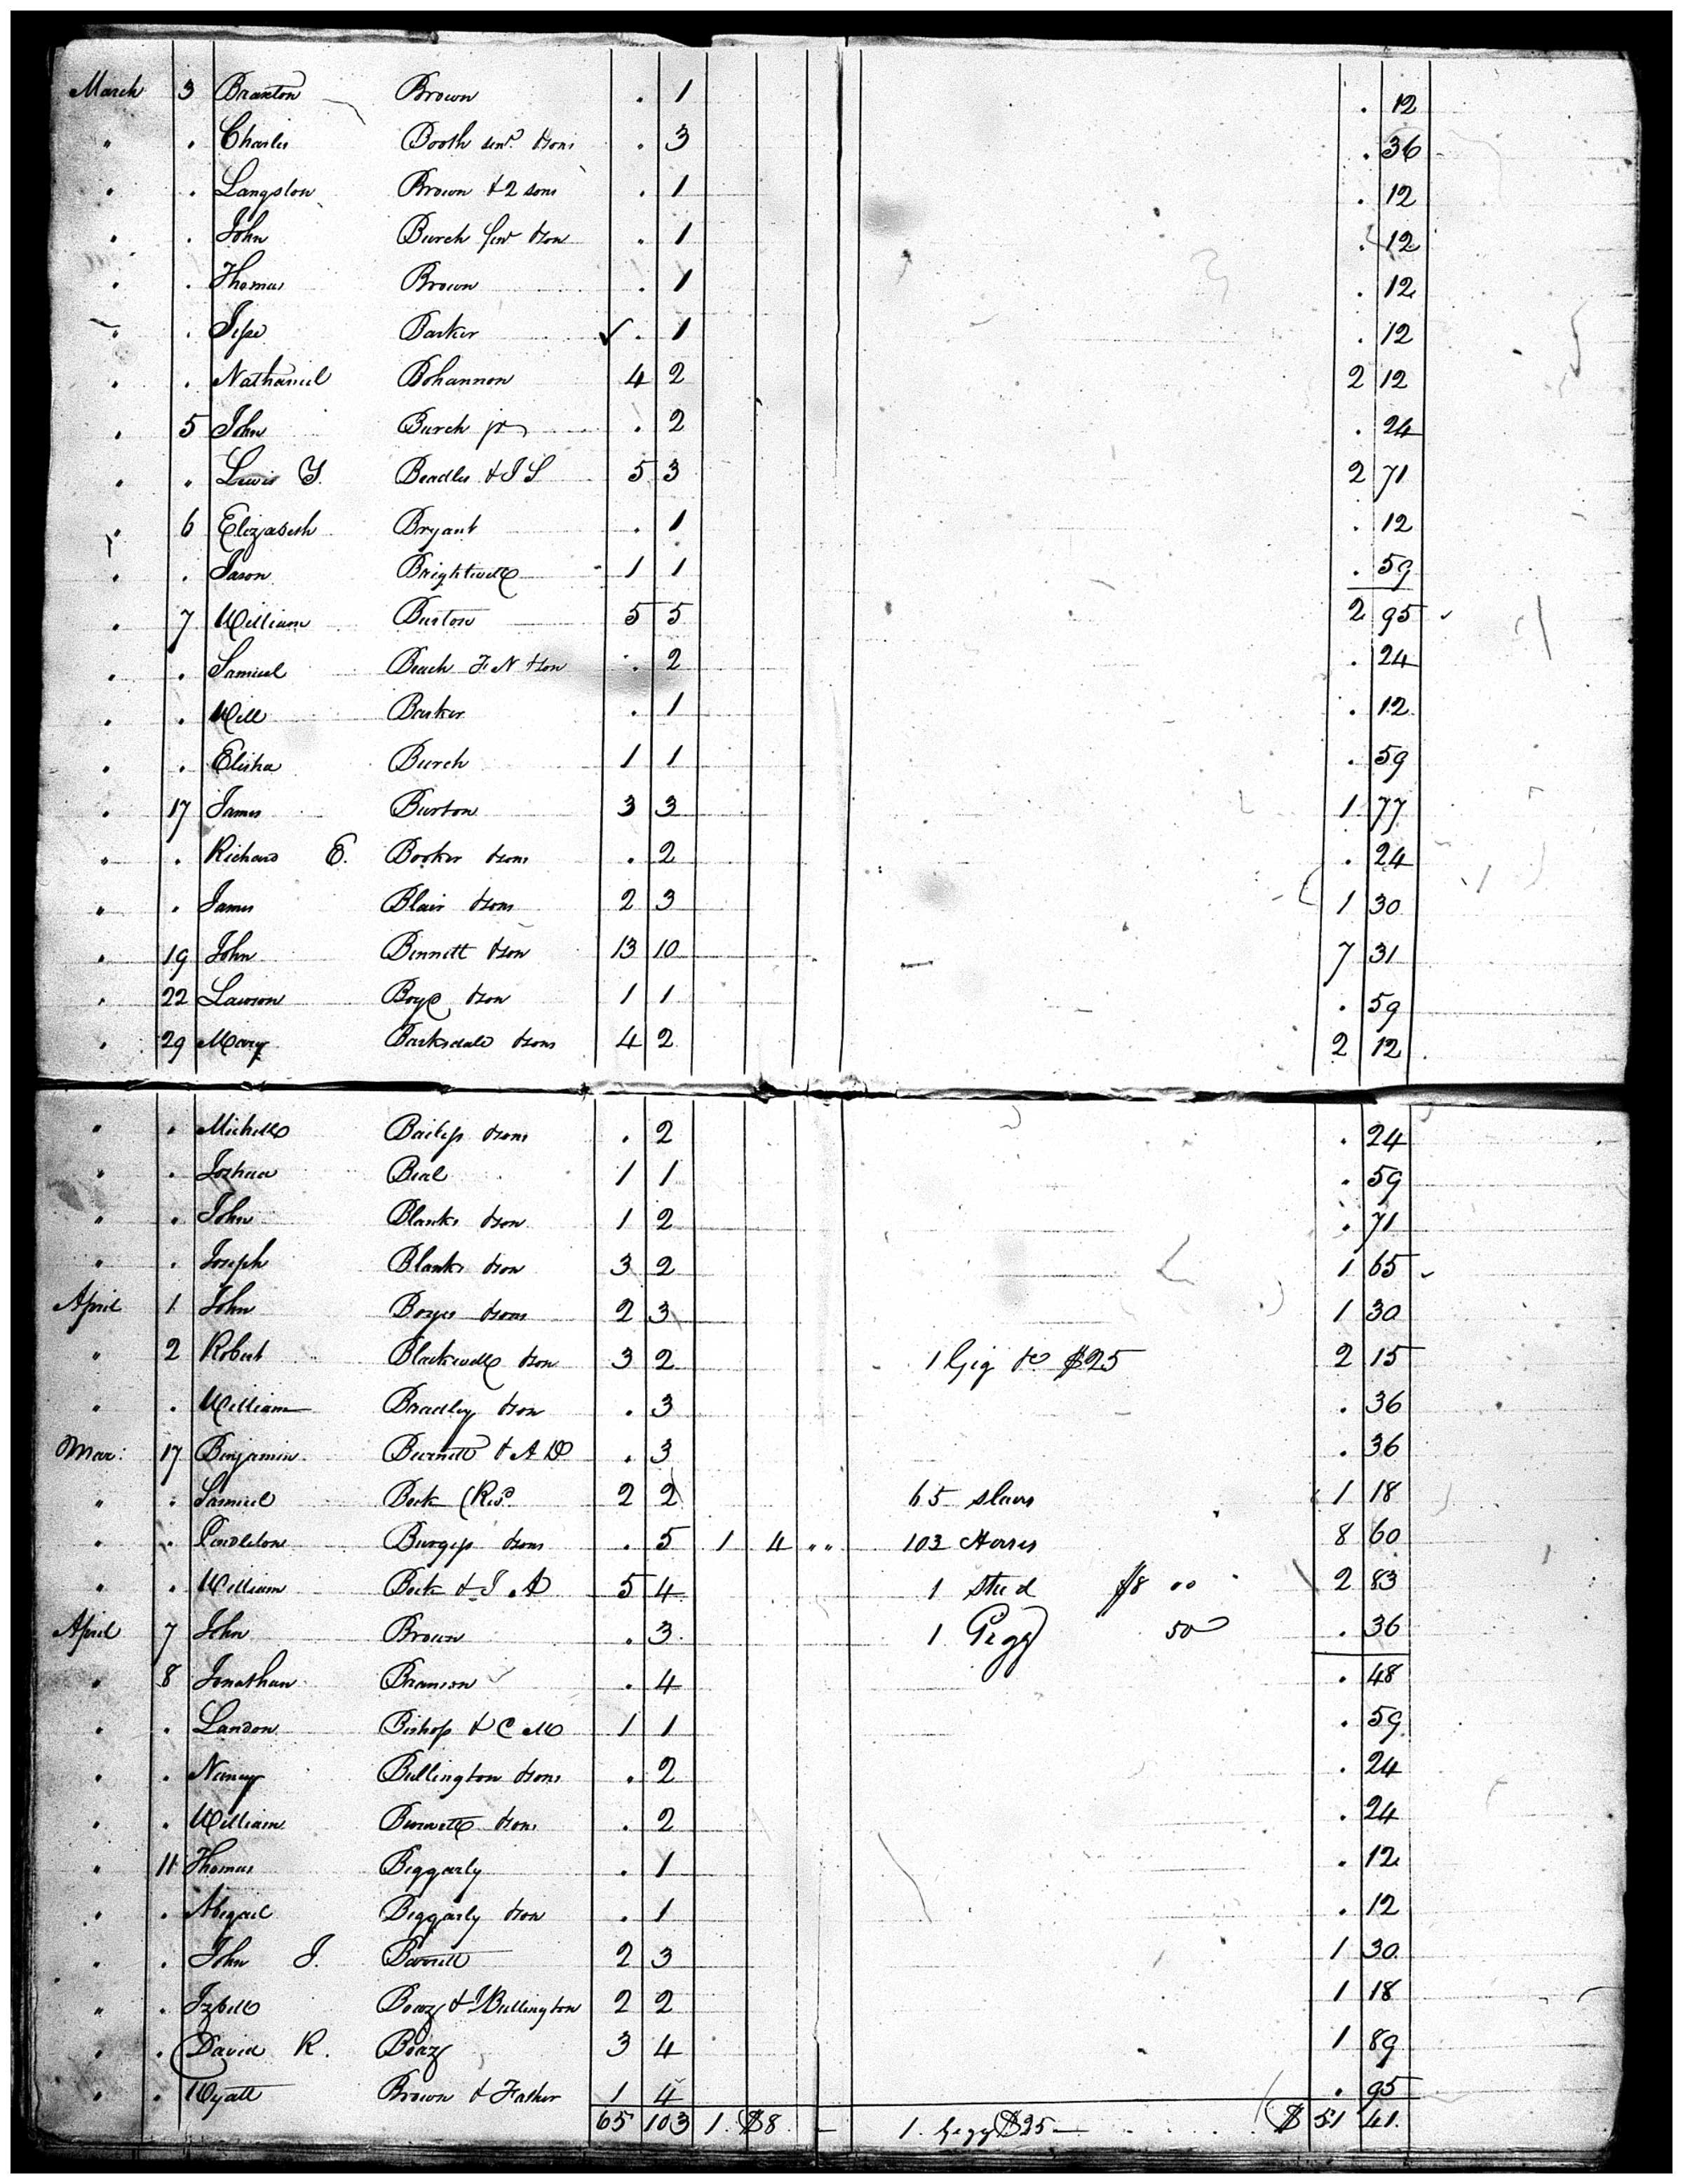 March 3 Braxton Brown . 1 . 12
" . Charles Booth senr. & sons . 3 . 36
" . Langston Brown & 2 sons . 1 . 12
" . John Burch senr & son . 1 . 12
" . Thomas Brown . 1 . 12
" . Jesse Barker ✓ . 1 . 12
" . Nathaniel Bohannon 4 2 2 12
" 5 John Burch jr . 2 . 24
" " Lewis Y. Beadles & J S 5 3 2 71
" 6 Elizabeth Bryant . 1 . 12
" . Jason Brightwell 1 1 . 59
" 7 William Burton 5 5 2 95
" . Samuel Burch F. N & son . 2 . 24
" . Will Barker . 1 . 12
" . Elisha Burch 1 1 . 59
" 17 James Burton 3 3 1 77
" . Richard E. Booker & sons . 2 . 24
" . James Blair & sons 2 3 1 30
" 19 John Bennett & son 13 10 7 31
" 22 Lawson Boyd & son 1 1 . 59
" 29 Mary Barksdale & sons 4 2 2 12
" . Michell Bailess & sons . 2 . 24
" . Joshua Beal 1 1 . 59
" . John Blanks & son 1 2 . 71
" . Joseph Blanks & son 3 2 1 65
April 1 John Boyes & sons 2 3 1 30
" 2 Robert Blackwell & son 3 2 1 Gig &c $25 2 15
" . William Bradley & son . 3 . 36
Mar: 17 Benjamin Burnett & A D . 3 . 36
" . Samuel Beck 2 2 65 slaves 1 18
" . Pendleton Burgess & sons . 5 1 4 " " 103 Horses 8 60
" . William Beck & J. A 5 4 1 stud $8 00 2 83
April 7 John Brown . 3 1 Gigg 50 . 36
" 8 Jonathan Branson . 4 . 48
" . Landon Bishop & C M 1 1 . 59
" . Nancy Bullington & sons . 2 . 24
" . William Burnett & sons . 2 . 24
" 11 Thomas Beggarly . 1 . 12
" . Abigail Beggarly & son . 1 . 12
" . John J. Barrett 2 3 1 30
" . Izbell Boaz & J Bullington 2 2 1 18
" . David R. Boaz 3 4 1 89
" . Wyatt Brown & Father 1 4 . 95
65 103 1. $8 — 1. Gigg $25 — $ 51 41